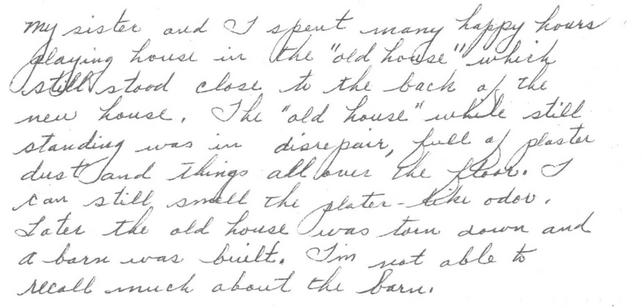 My sister and I spent many happy hours
playing house in the "old house" which
still stood close to the back of the
new house. The "old house" while still
standing was in disrepair, full of plaster
dust and things all over the floor. I
can still smell the plater-like odor.
Later the old house was torn down and
a barn was built. I'm not able to
recall much about the barn.